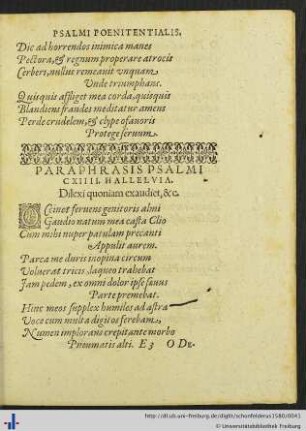 PSALMI POENITENTIALIS.
Dic ad horrendos inimica manes
Pectora, & regnum properare atrocis
Cerberi, nullus remeauit vnquam
Vnde triumphans.
Quisquis affliget mea corda, quisquis
Blandiens fraudes meditatur amens
Perde crudelem, & clypeo fauoris
Protege seruum.
PARAPHRASIS PSALMI
CXIIII. HALLELVIA.
Dilexi quoniam exaudiet, &c.
Ccinet feruens genitoris almi
Gaudio natum mea casta Clio
Cum mihi nuper patulam precanti
Appulit aurem.
Parca me duris inopina circum
Voluerat tricis, laqueo trahebat
Iam pedem, ex omni dolor ipse sanus
Parte premebat.
Hinc meos supplex humiles ad astra
Voce cum multa digitos ferebam,
Numen implorans crepitante morbo
Pneumatis alti. E3 O De-
http://dl.ub.uni-freiburg.de/diglit/schonfelderus1580/0041
© Universitätsbibliothek Freiburg